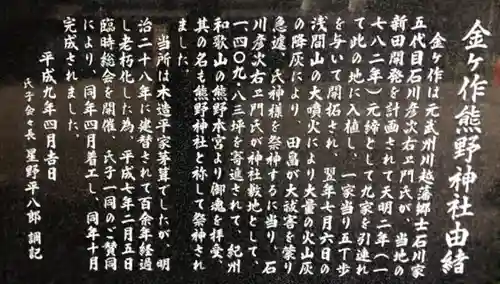 金ヶ作熊野神社由緒
金ヶ作は元武州川越藩郷士石川家
五代目石川彦次右ヱ門氏が、当地の
新田開発を計画されて天明二年(一
七八二年)元締として九家を引連れ
て此の地に入植し、一家当り五丁歩
を与いて開拓され、翌年七月六日の
浅間山の大噴火により大量の火山灰
の降灰により、田畠が大談害を蒙り
急遽、氏神様を祭祠するに当り、石
川彦次右ヱ門氏が神社敷地として、
一四〇九・八三坪を寄進されて、紀州
和歌山の熊野本宮より御魂を拝受、
其の名も熊野神社と称して祭神され
ました。
当所は木造平家茅葺でしたが、明
治二十八年に建替されて百余年経過
し老朽化した為、平成七年二月五日
臨時総会を開催、氏子一同のご賛同
により、同年四月着工し、同年十月
完成されました。
平成九年四月吉日
氏子会々長 星野平八郎 調記